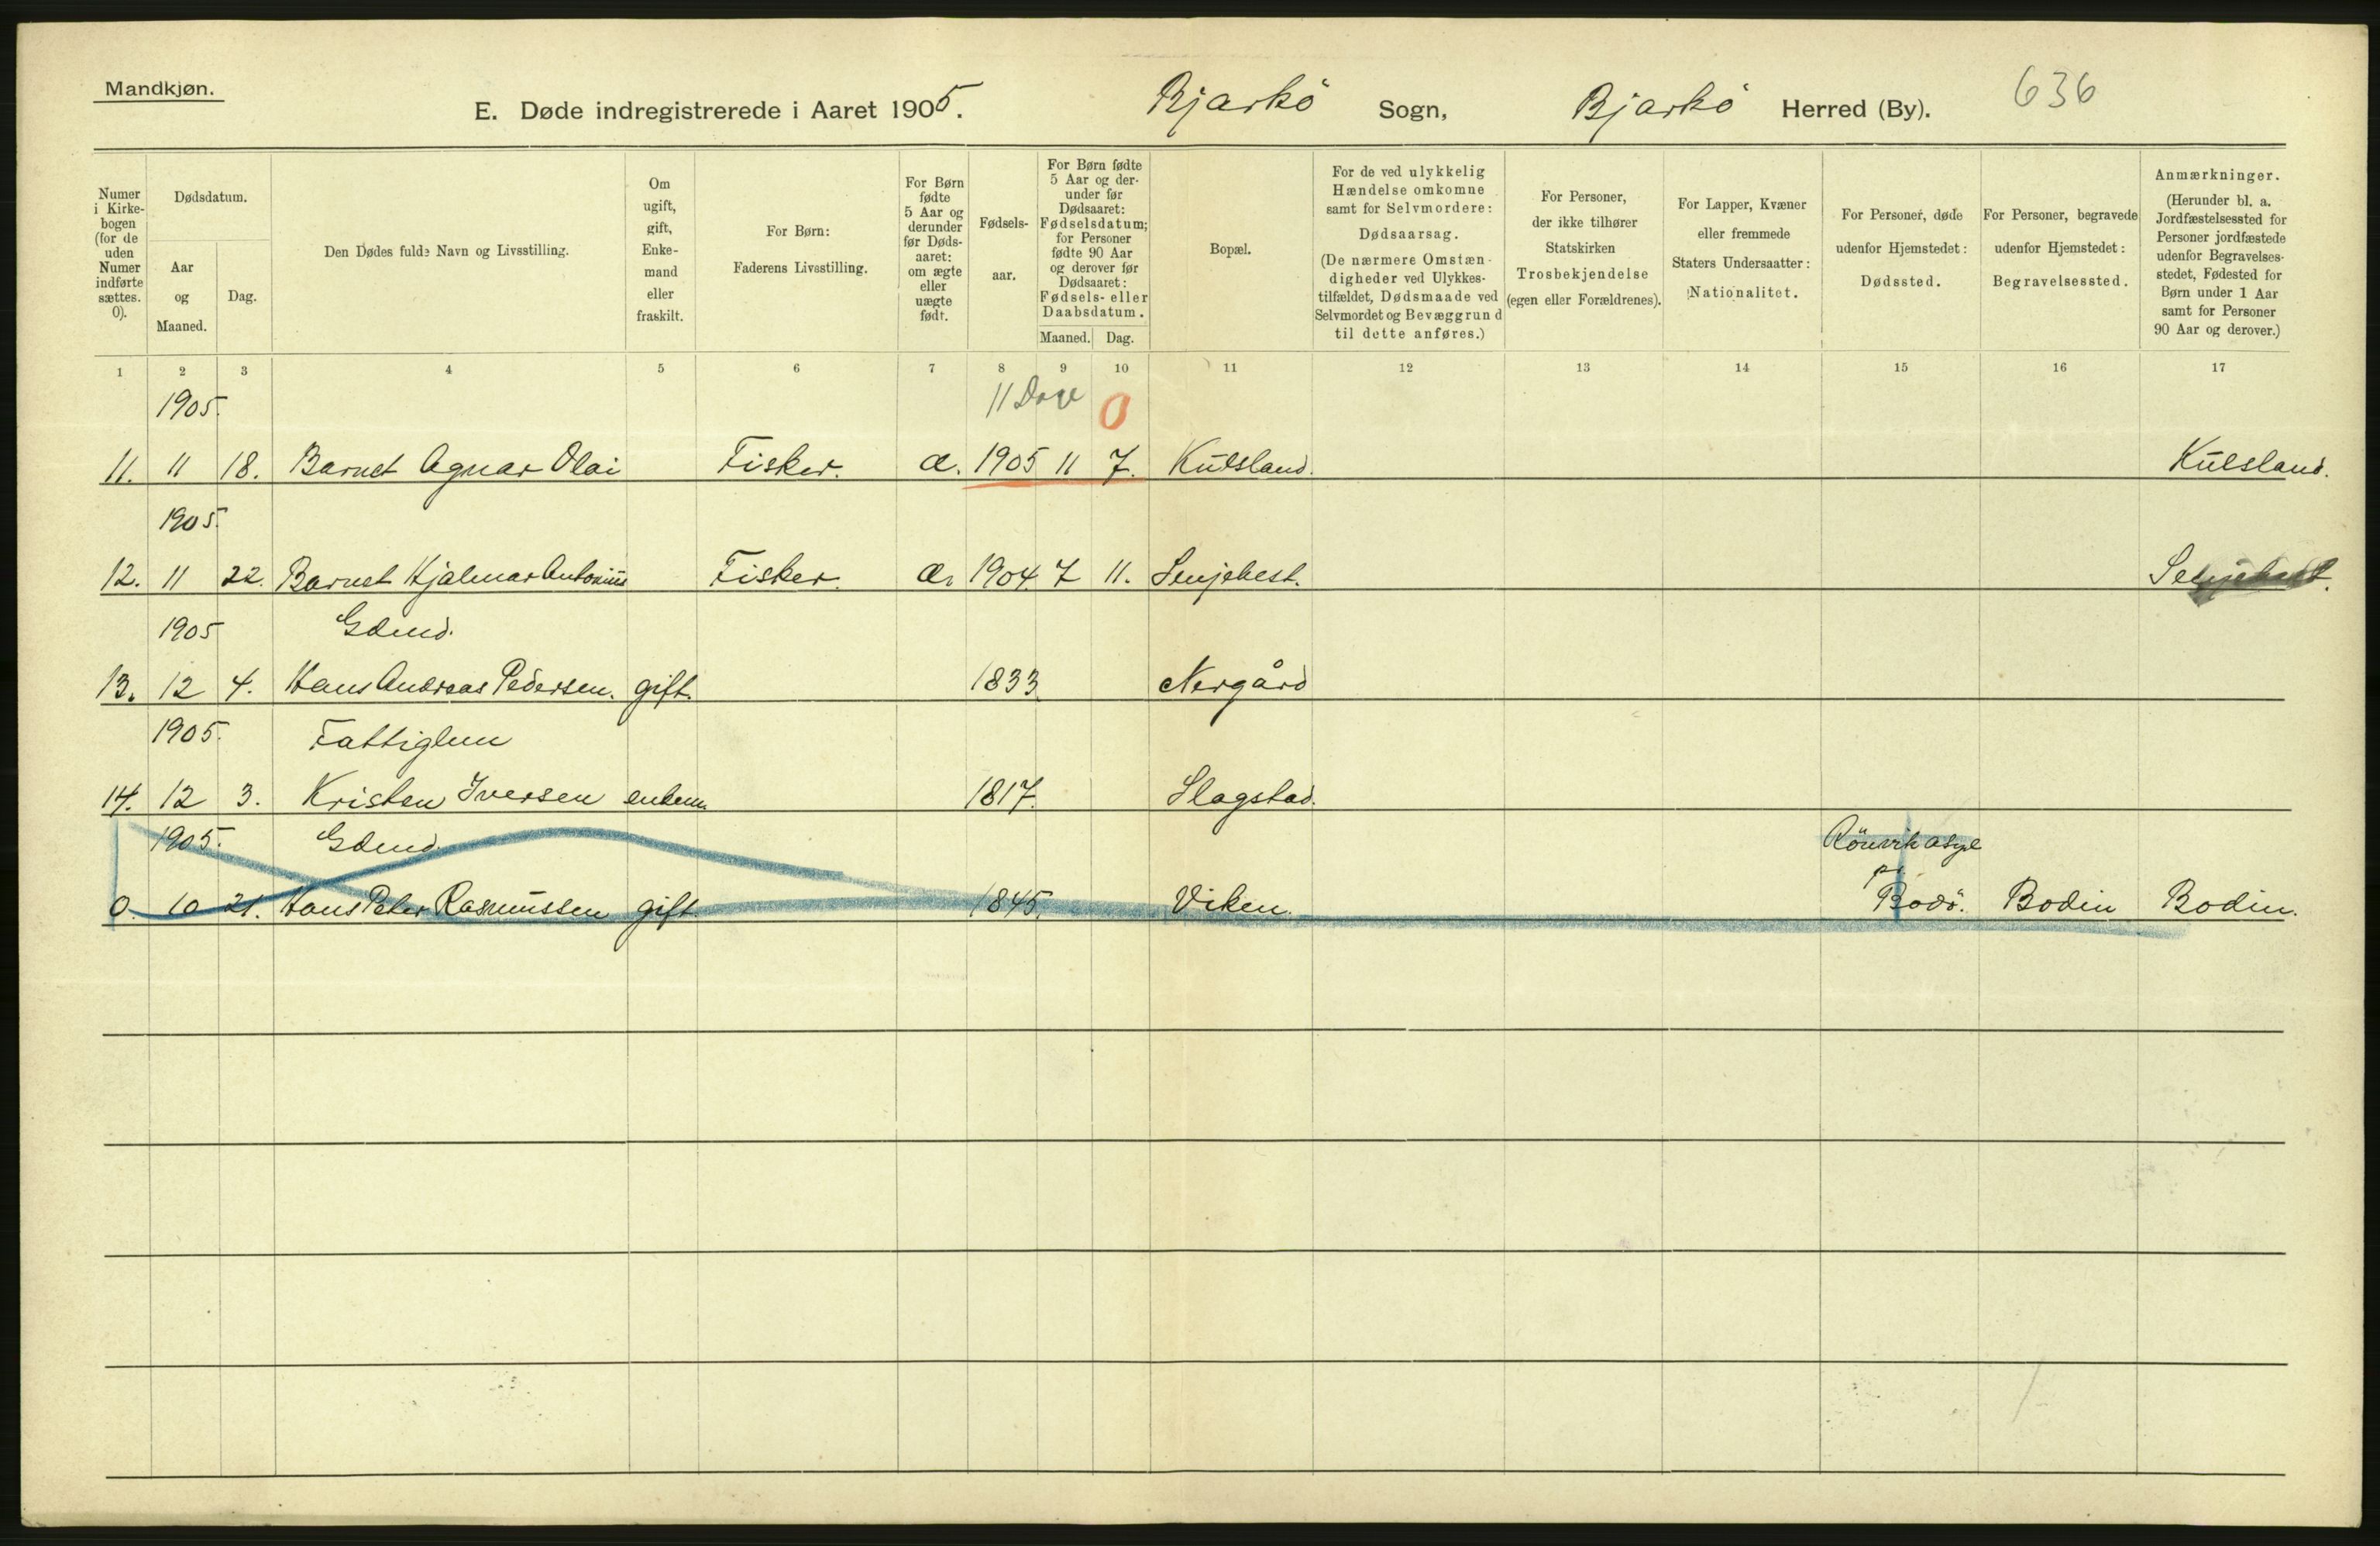 Mandkjøn.
E. Døde indregistrerede i Aaret 1905. Bjarkö Sogn, Bjarkö Herred (By). 636
Numer i Kirkebogen (for de uden Numer indførte sættes. 0).
Dødsdatum.
Aar og Maaned.
Dag.
Den Dødes fulde Navn og Livsstilling.
Om ugift, gift, Enkemand eller fraskilt.
For Børn: Faderens Livsstilling.
For Børn fødte 5 Aar og derunder før Dødsaaret: om ægte eller uægte født.
Fødselsaar.
For Børn fødte 5 Aar og derunder før Dødsaaret: Fødselsdatum; for Personer fødte 90 Aar og derover før Dødsaaret: Fødsels- eller Daabsdatum.
Maaned. Dag.
Bopæl.
For de ved ulykkelig Hændelse omkomne samt for Selvmordere: Dødsaarsag. (De nærmere Omstændigheder ved Ulykkestilfældet, Dødsmaade ved Selvmordet og Bevæggrund til dette anføres.)
For Personer, der ikke tilhører Statskirken Trosbekjendelse (egen eller Forældrenes).
For Lapper, Kvæner eller fremmede Staters Undersaatter: Nationalitet.
For Personer, døde udenfor Hjemstedet: Dødssted.
For Personer, begravede udenfor Hjemstedet: Begravelsessted.
Anmærkninger. (Herunder bl. a. Jordfæstelsessted for Personer jordfæstede udenfor Begravelsesstedet, Fødested for Børn under 1 Aar samt for Personer 90 Aar og derover.)
1 2 3 4 5 6 7 8 9 10 11 12 13 14 15 16 17
1905. 11 Dage 0
11. 11 18. Barnet Agnar Olai Fisker. æ. 1905 11 7. Külsland. Külsland.
1905.
12. 11 22. Barnet Hjalmar Antoniüs Fisker. æ. 1904. 7 11. Senjehest. Senjehest.
1905 Gdmd.
13. 12 4. Hans Andreas Pedersen. gift. 1833. Nergård
1905. Fattiglem
14. 12 3. Kristen Iversen enkem. 1817. Slagstad.
1905. Gdmd. Rönvik asyl
pr.
0. 10 21. Hans Peter Rasmüssen gift 1845. Viken. Bodö. Bodin Bodin.